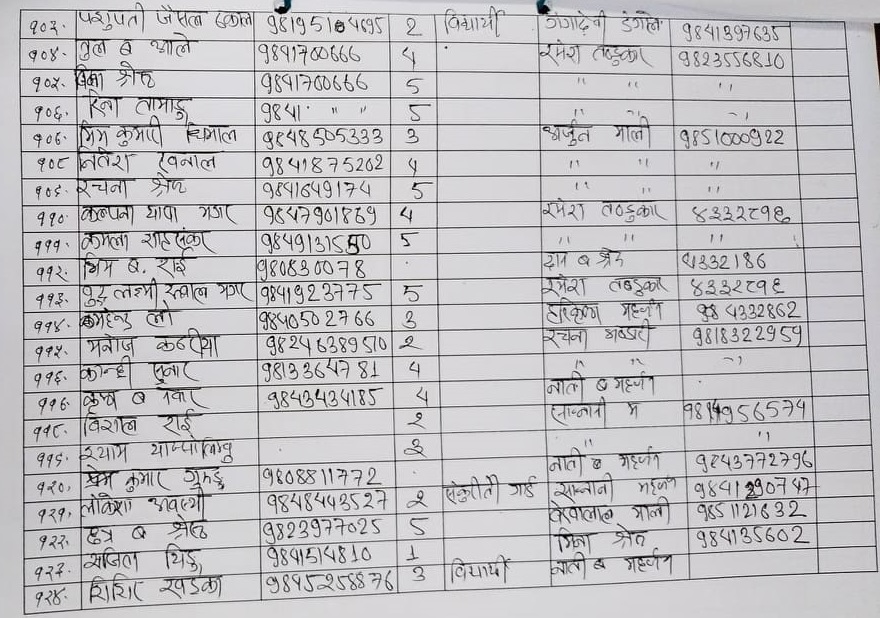 १०३. पशुपती जैसल ढकाल 9819514695 2 विद्यार्थी गंगादेवी डंगोल 9841397635
१०४. तुल ब आले 9841700666 4 रमेश तण्डुकार 9823556810
१०५. बिना श्रेष्ठ 9841760666 5 " " "
१०६. रिना तामाङ्ग 9841 " " 5 " " "
१०७. भिम कुमारी घिमाल 9848505333 3 अर्जुन माली 9851000922
१०८ नितेश खनाल 9841875202 4 " " "
१०९. रचना श्रेष्ठ 9841649174 5 " " "
११०. कल्पना थापा मगर 9847901869 4 रमेश तण्डुकार ४३३२८१६
१११. कमला 9849131550 5 " " "
११२. भिम ब. राई 980830078 दान ब श्रेष्ठ 4332186
११३. बुद्ध लक्ष्मी मगर 9841923775 5 रमेश तण्डुकार ४३३२८१६
११४. लो 9840502766 3 हरिकृष्ण महर्जन 984332862
११५. मनोज कठरीया 98246389510 2 रचना भण्डारी 9818322959
११६. कान्छी सुनार 9813364781 4 " " "
११७. कृष्ण ब नेकार 9843434185 4 नाती ब महर्जन
११८. विशाल राई 2 सान्नानी म 9814956574
११९. श्याम याम्फालिम्बु 3 " "
१२०. प्रेम कुमार गुरुङ्ग 9808811772 नाती ब महर्जन 9843772796
१२१. लोकेश अवस्थी 9848443527 2 सेकुरीती गार्ड सान्नानी महर्जन 9841290747
१२२. छत्र ब श्रेष्ठ 9823977025 5 माली 9851121632
१२३. सजिता थिङ्ग 9841514810 1 मिना श्रेष्ठ 984135602
१२४. शिशिर खड्का 9845258876 3 विद्यार्थी नाती ब महर्जन